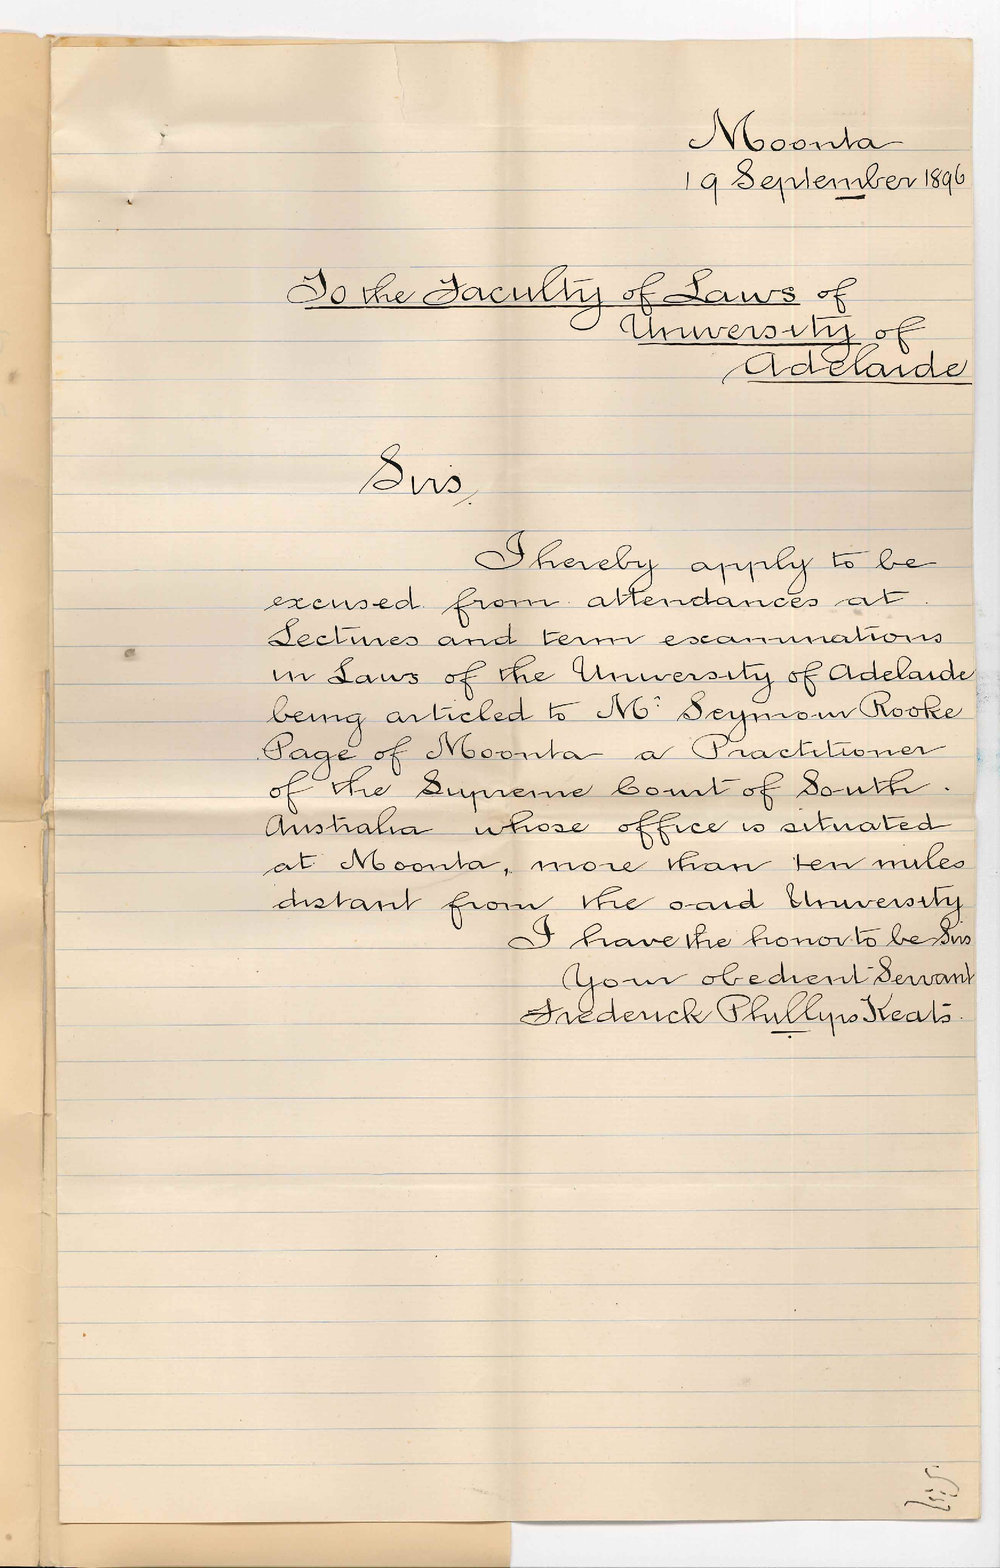 Moonta
19 September 1896
To the Faculty of Laws of
University of
Adelaide
Sirs,
I hereby apply to be
excused from attendances at
Lectures and term examinations
in Laws of the University of Adelaide
being articled to Mr Seymour Rooke
Page of Moonta a Practitioner
of the Supreme Court of South
Australia whose office is situated
at Moonta, more than ten miles
distant from the said University
I have the honor to be Sirs
Your obedient Servant
Frederick Phillyps Keats.